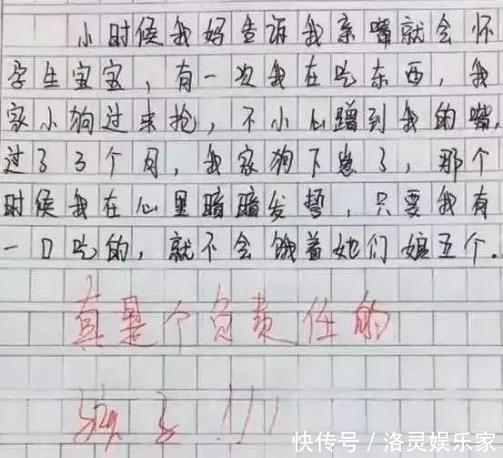 小时候我妈告诉我亲嘴就会怀
孕生宝宝，有一次我在吃东西，我
家小狗过来抢，不小心蹭到我的嘴，
过了3个月，我家狗下崽了，那个
时候我在心里暗暗发誓，只要我有
一口吃的，就不会饿着她们娘五个.
真是个负责任的
孩子!!!
快传号／洛灵娱乐家